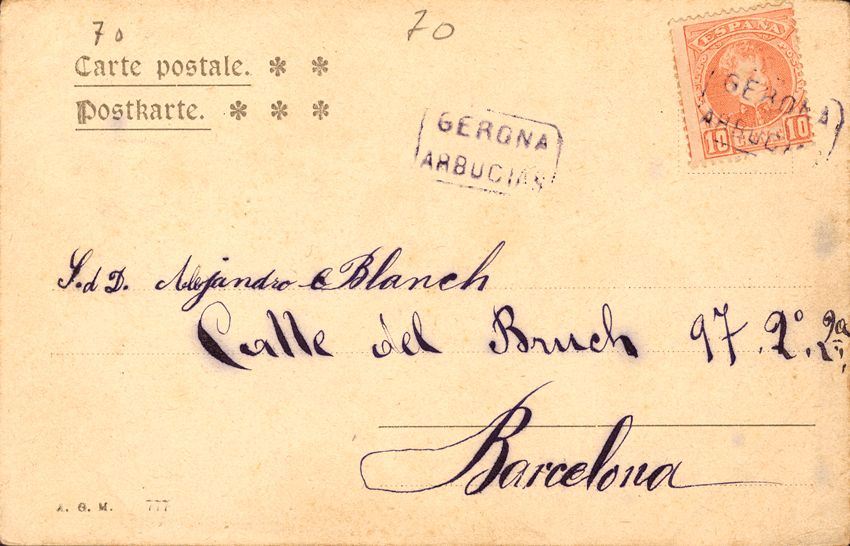 70
70
Carte postale. * *
Postkarte. * * *
ESPAÑA
10 10
GERONA
ARBUCIAS
GERONA
ARBUCIAS
S. d D. Alejandro Blanch
Calle del Bruch 97. 2º. 2ª
Barcelona
A. G. M. 777